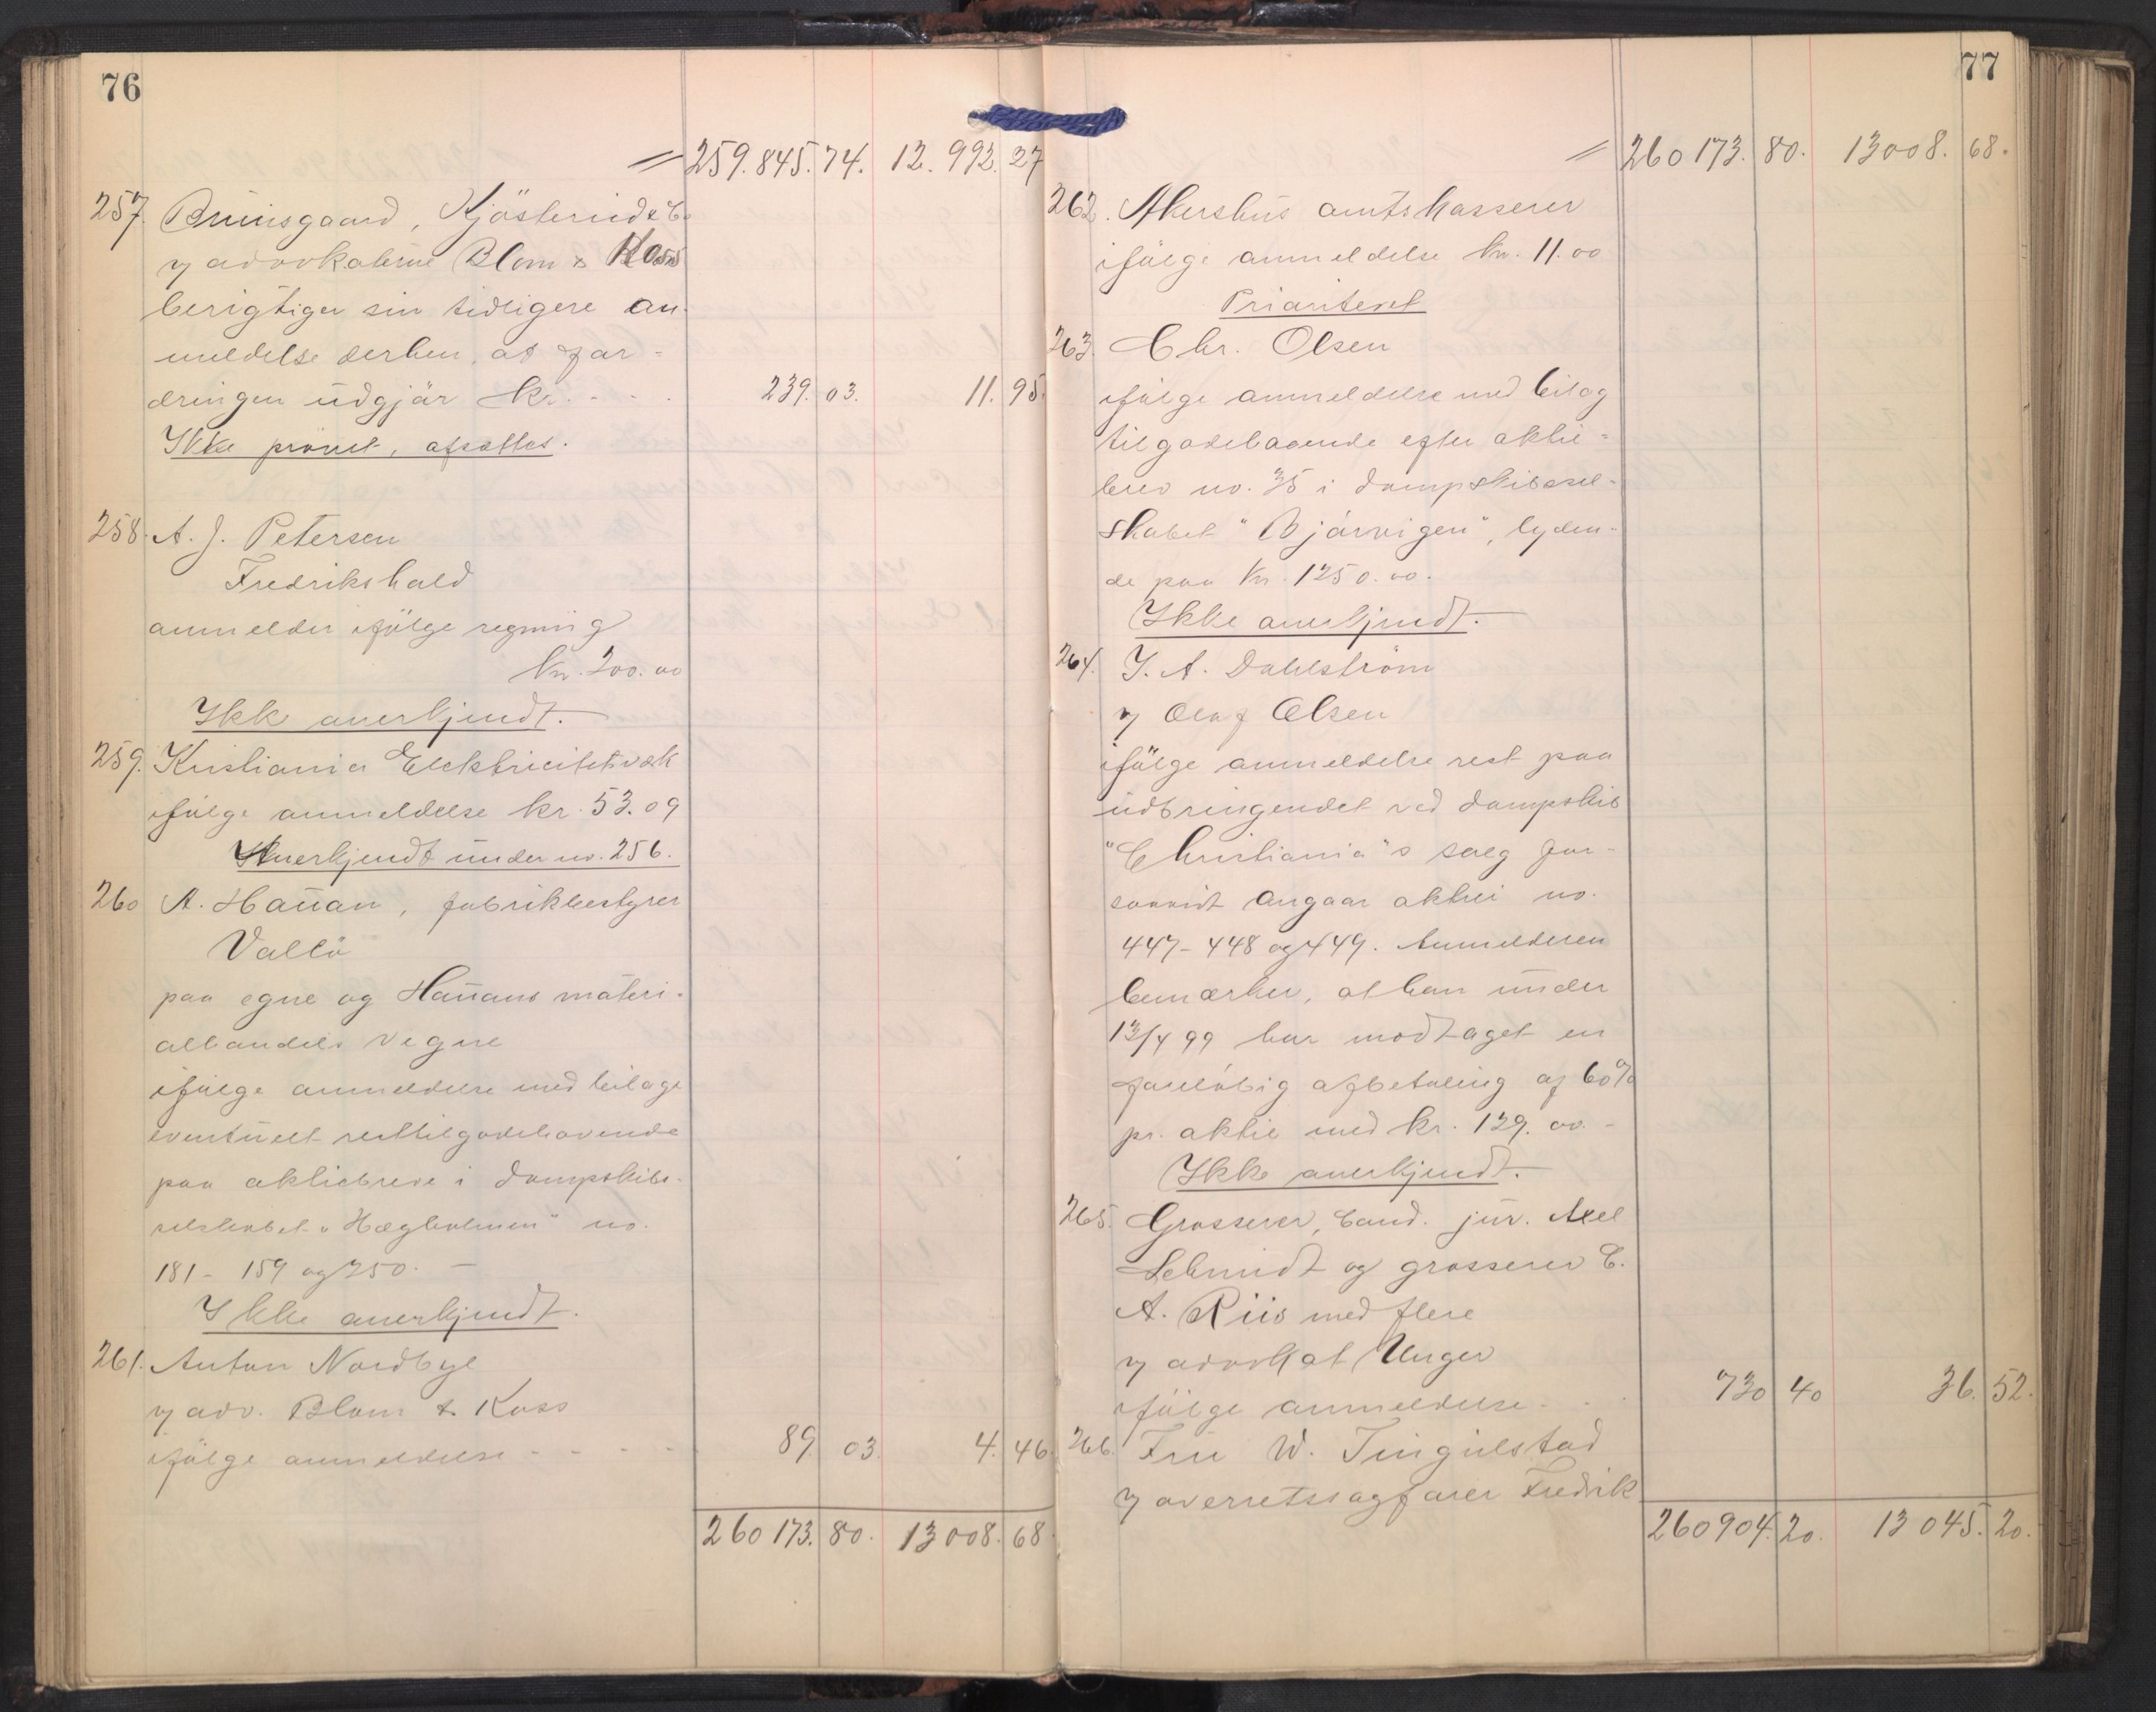 76
259.845.74. 12.992.27
257. Bruusgaard, Kjøsterud & Co
v/ advokaterne Blom & Koss
berigtiger sin tidligere an-
meldelse derhen, at for-
dringen udgjør kr. - - - 239.03. 11.95.
Ikke prøvet, afsættes.
258. A. J. Petersen
Fredrikshald
anmelder ifølge regning
kr. 200.00
Ikke anerkjendt.
259. Kristiania Elektricitetsværk
ifølge anmeldelse kr. 53.09
Anerkjendt under no. 256.
260 A. Hauan, fabrikbestyrer
Vallø
paa egne og Hauans materi-
alhandels vegne
ifølge anmeldelse med bilage
eventuelt resttilgodehavende
paa aktiebreve i Dampskibs-
selskabet "Hægholmen" no.
181 - 159 og 250. -
Ikke anerkjendt.
261. Anton Nordbye
v/ adv. Blom & Koss
ifølge anmeldelse - - - - - 89 03. 4. 46.
260 173. 80. 13 008. 68.
77
260 173. 80. 13008. 68.
262. Akershus amtskasserer
ifølge anmeldelse kr. 11.00
Prioriteret
263. Chr. Olsen
ifølge anmeldelse med bilag
tilgodehavende efter aktie-
brev no. 35 i Dampskibssel-
skabet "Bjørvigen", lyden-
de paa kr. 1250.00.
Ikke anerkjendt.
264. J. A. Dahlstrøm
v/ Olaf Olsen
ifølge anmeldelse rest paa
udbringendet ved dampskib
"Christiania"s salg for-
saavidt angaar aktier no.
447- 448 og 449. Anmelderen
bemærker, at han under
13/4 99 har modtaget en
foreløbig afbetaling af 60%
pr. aktie med kr. 129.00. -
Ikke anerkjendt.
265. Grosserer, Cand. jur. Axel
Schmidt og grosserer C.
A. Riis med flere
v/ advokat Unger
ifølge anmeldelse - - 730 40 36. 52.
266. Fru W. Tingulstad
v/ overretssagfører Fredrik
260904. 20. 13 045. 20.